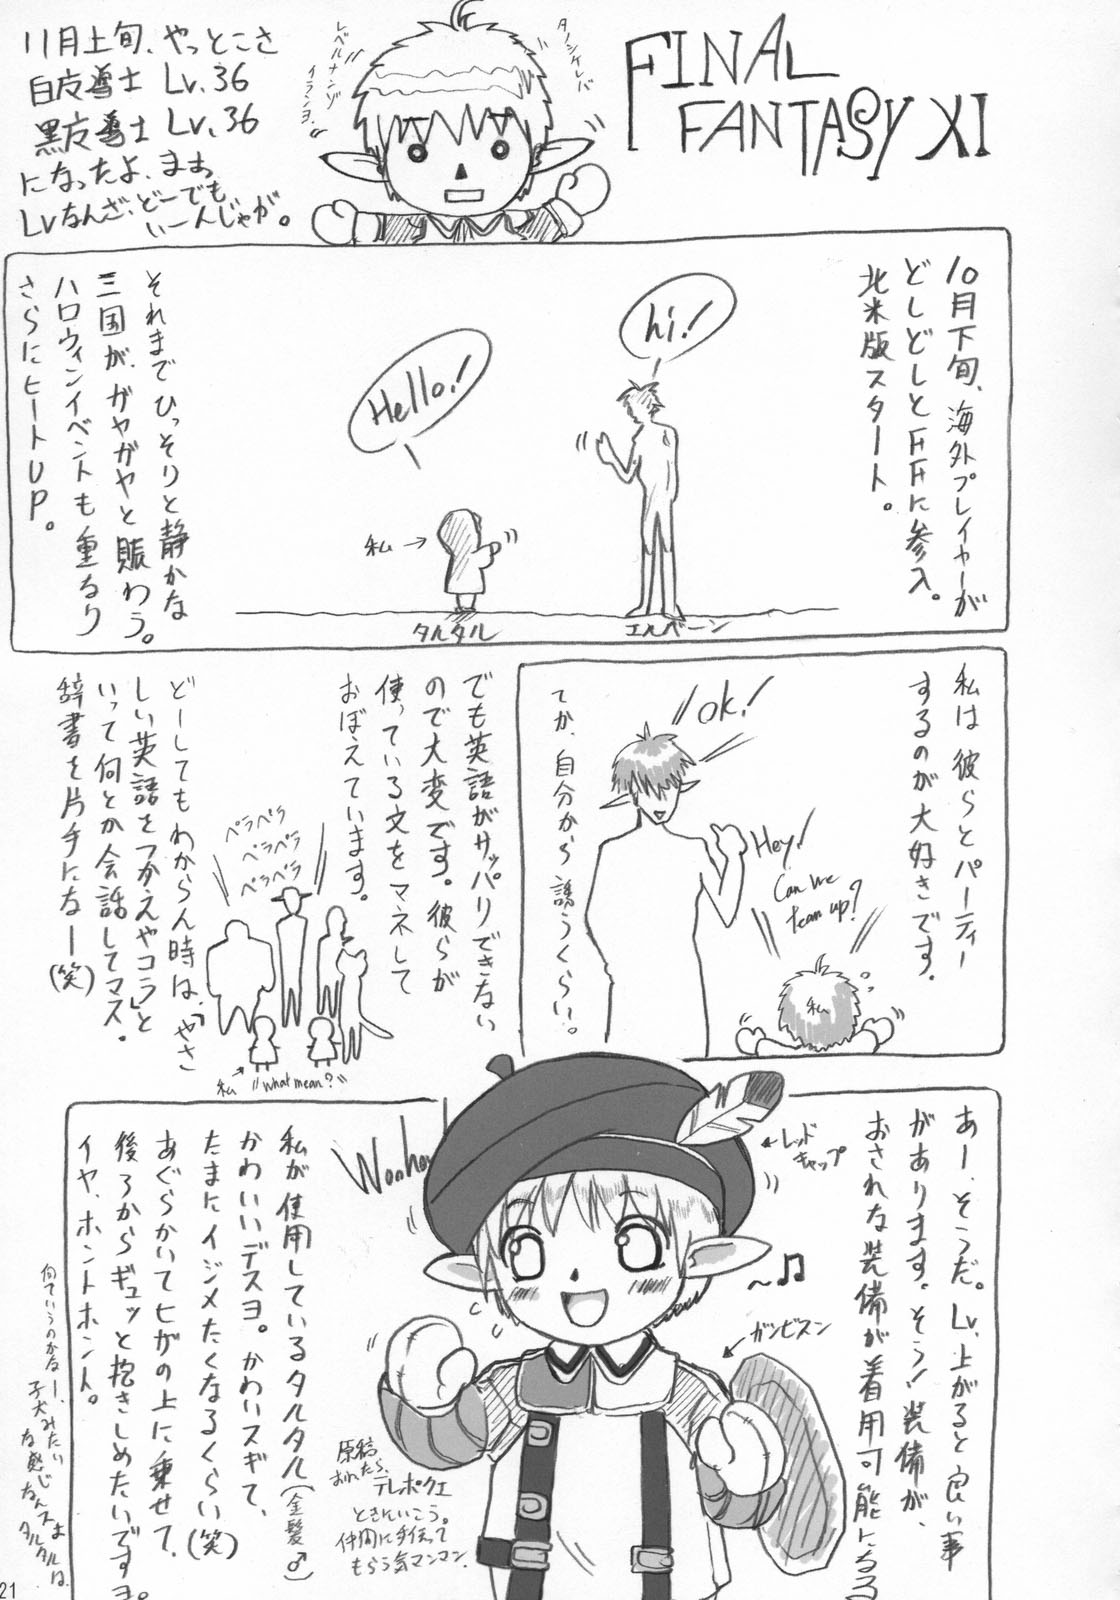 FINAL
FANTASY XI
11月上旬、やっとこさ
白魔導士 Lv.36
黒魔導士 Lv.36
になったよ、まぁ
Lvなんざ、どーでも
いーんじゃが。
タノシケレバ
レベルナンゾ
イランヨ。
10月下旬、海外プレイヤーが
どしどしとFFに参入。
北米版スタート。
hi!
Hello!
私→
タルタル
エルベーン
それまでひっそりと静かな
三国が、ガヤガヤと賑わう。
ハロウィンイベントも重なり
さらにヒートUP。
私は彼らとパーティー
するのが大好きです。
ok!
Hey!
Can we
team up?
私
てか、自分から誘うくらい。
でも英語がサッパリできない
ので大変です。彼らが
使っている文をマネして
おぼえています。
ペラペラ
ペラペラ
ペラペラ
どーしてもわからん時は、「やさ
しい英語をつかえやコラ」と
いって何とか会話してマス。
辞書を片手になー(笑)
私
"what mean?"
あー、そうだ。Lv.上がると良い事
があります。そう!装備が、
おされな装備が着用可能になる
←レッド
キャップ
ガンビスン
私が使用しているタルタル(金髪♂)
かわいいデスヨ。かわいスギて、
たまにイジメたくなるくらい(笑)
あぐらかいてヒザの上に乗せて、
後ろからギュッと抱きしめたいですヨ。
イヤ、ホントホント。
何ていうのかなー、子犬みたい
な感じなんスよ タルタルは、
原稿
おわったら、テレポクエ
ときにいこう。
仲間に手伝って
もらう気マンマン。
21